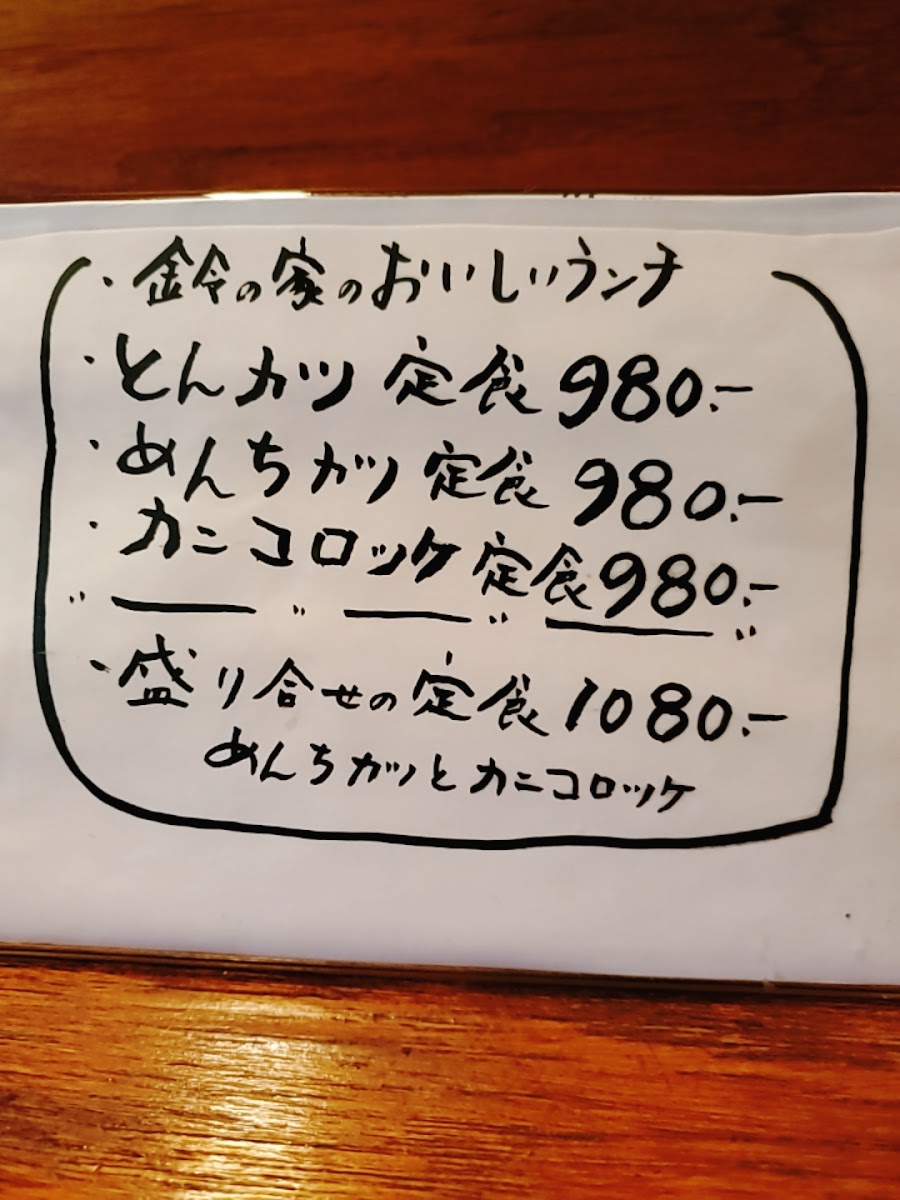 ・鈴の家のおいしいランチ
・とんカツ 定食 980.-
・めんちカツ 定食 980.-
・カニコロッケ 定食 980.-
・盛り合せの定食 1080.-
めんちカツとカニコロッケ